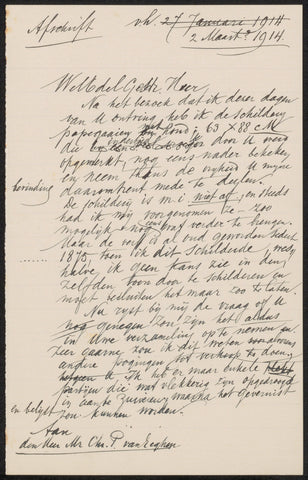 Afschrift
vh. 27 Januari 1914
2 Maart 1914.
WelEdel Gestr. Heer,
Na het bezoek dat ik dezer dagen
van U ontving heb ik de schilderij
papegaaien met hond; 63 x 88 cM
die door U werd
opgemerkt, nog eens nader bekeken
en neem thans de vrijheid U mijne
bevinding
daaromtrent mede te deelen.
De schilderij is m.i. niet af, en steeds
had ik mij voorgenomen ze - zoo
mogelijk - nog verder te brengen.
Maar de verf is al oud geworden sedert
1875, toen ik dit schilderde, wes-
halve ik geen kans zie in den
zelfden toon door te schilderen en
moet besluiten het maar zoo te laten.
Nu rijst bij mij de vraag of U
nog genegen zou zijn het aldus
in Uwe verzameling op te nemen en
zeer gaarne zou ik dit weten alvorens
andere pogingen tot verkoop te doen,
Ik heb er maar enkele
partijen die wat vlekkerig zijn opgedroogd
en belyst
zou kunnen worden.
Aan
den Heer Mr Chr. P. van Eeghen